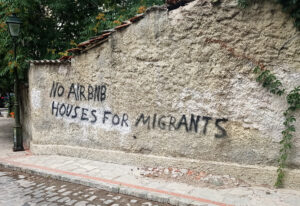 NO AIRBNB
HOUSES FOR MIGRANTS